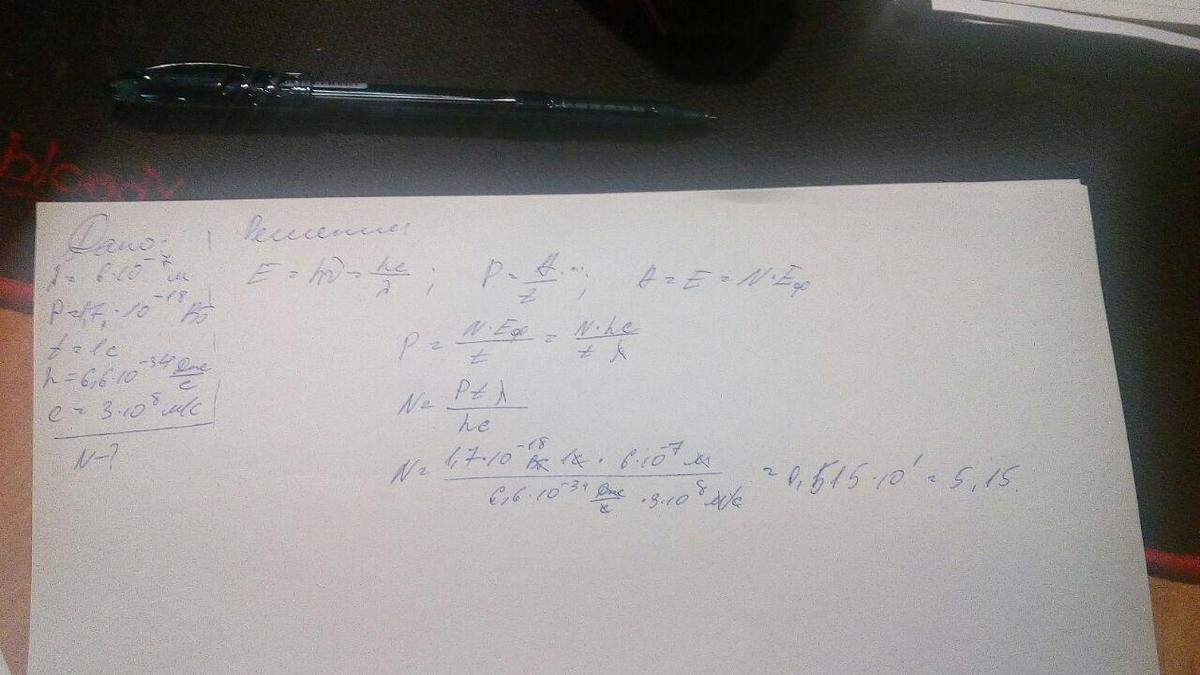 bloody
Дано:
λ = 6·10⁻⁷ м
P = 1,7·10⁻¹⁸ Вт
t = 1с
h = 6,6·10⁻³⁴ Дж/с
c = 3·10⁸ м/с
N-?
Решение:
E = hν = hc/λ ; P = A/t ; A = E = N·Eф
P = N·Eф/t = N·hc/t λ
N = P t λ/hc
N = 1,7·10⁻¹⁸ Вт 1с · 6·10⁻⁷ м/6,6·10⁻³⁴ Дж/с · 3·10⁸ м/с = 0,515·10¹ = 5,15.